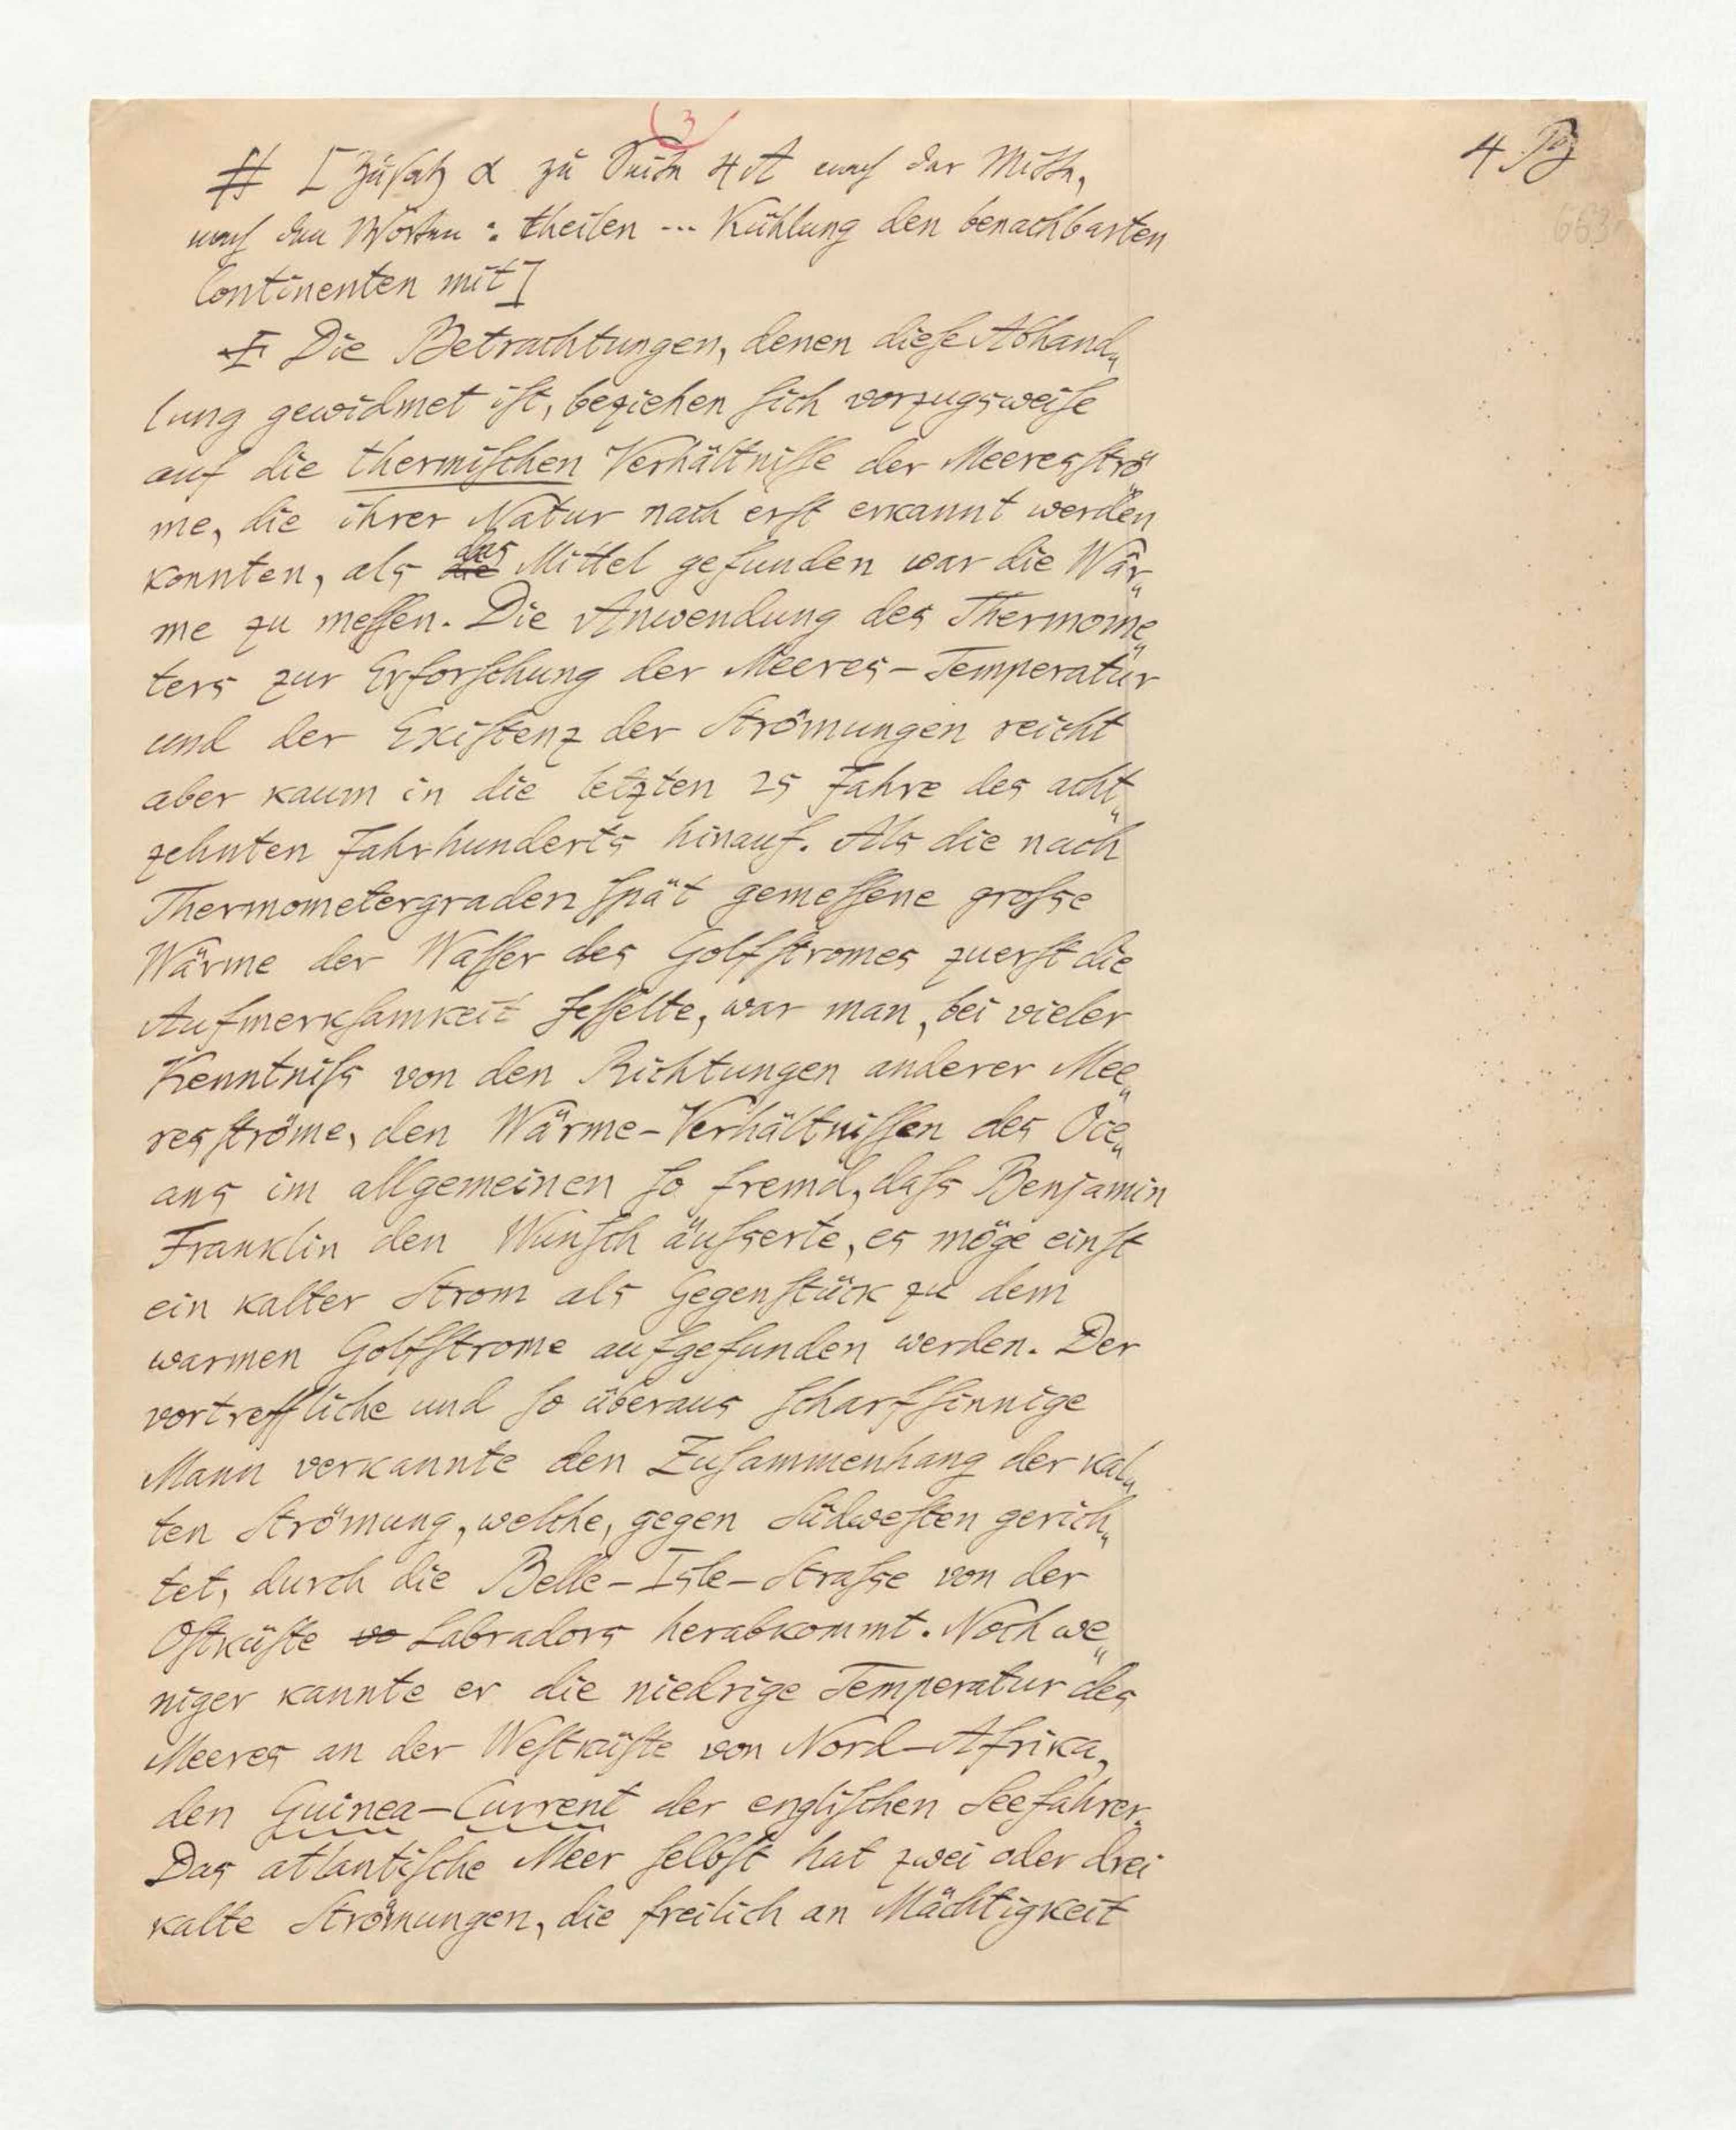 3
# [Zusatz α zu Seite 4A nach der Mitte,
nach den Worten: theilen ... Kühlung den benachbarten
Continenten mit]
Die Betrachtungen, denen diese Abhand„
lung gewidmet ist, beziehen sich vorzugsweise
auf die thermischen Verhältnisse der Meeresströ„
me, die ihrer Natur nach erst erkannt werden
konnten, als die das Mittel gefunden war die Wär„
me zu messen. Die Anwendung des Thermome„
ters zur Erforschung der Meeres-Temperatur
und der Existenz der Strömungen reicht
aber kaum in die letzten 25 Jahre des acht„
zehnten Jahrhunderts hinauf. Als die nach
Thermometergraden spät gemessene grosse
Wärme der Wasser des Golfstromes zuerst die
Aufmerksamkeit fesselte, war man, bei vieler
Kenntniss von den Richtungen anderer Mee„
resströme, den Wärme-Verhältnissen des Oce„
ans im allgemeinen so fremd, dass Benjamin
Franklin den Wunsch äusserte, es möge einst
ein kalter Strom als Gegenstück zu dem
warmen Golfstrome aufgefunden werden. Der
vortreffliche und so überaus scharfsinnige
Mann verkannte den Zusammenhang der kal„
ten Strömung, welche, gegen Südwesten gerich„
tet, durch die Belle-Isle-Strasse von der
Ostküste vo Labradors herabkommt. Noch we„
niger kannte er die niedrige Temperatur des
Meeres an der Westküste von Nord-Afrika,
den Guinea-Current der englischen Seefahrer.
Das atlantische Meer selbst hat zwei oder drei
kalte Strömungen, die freilich an Mächtigkeit
4
663